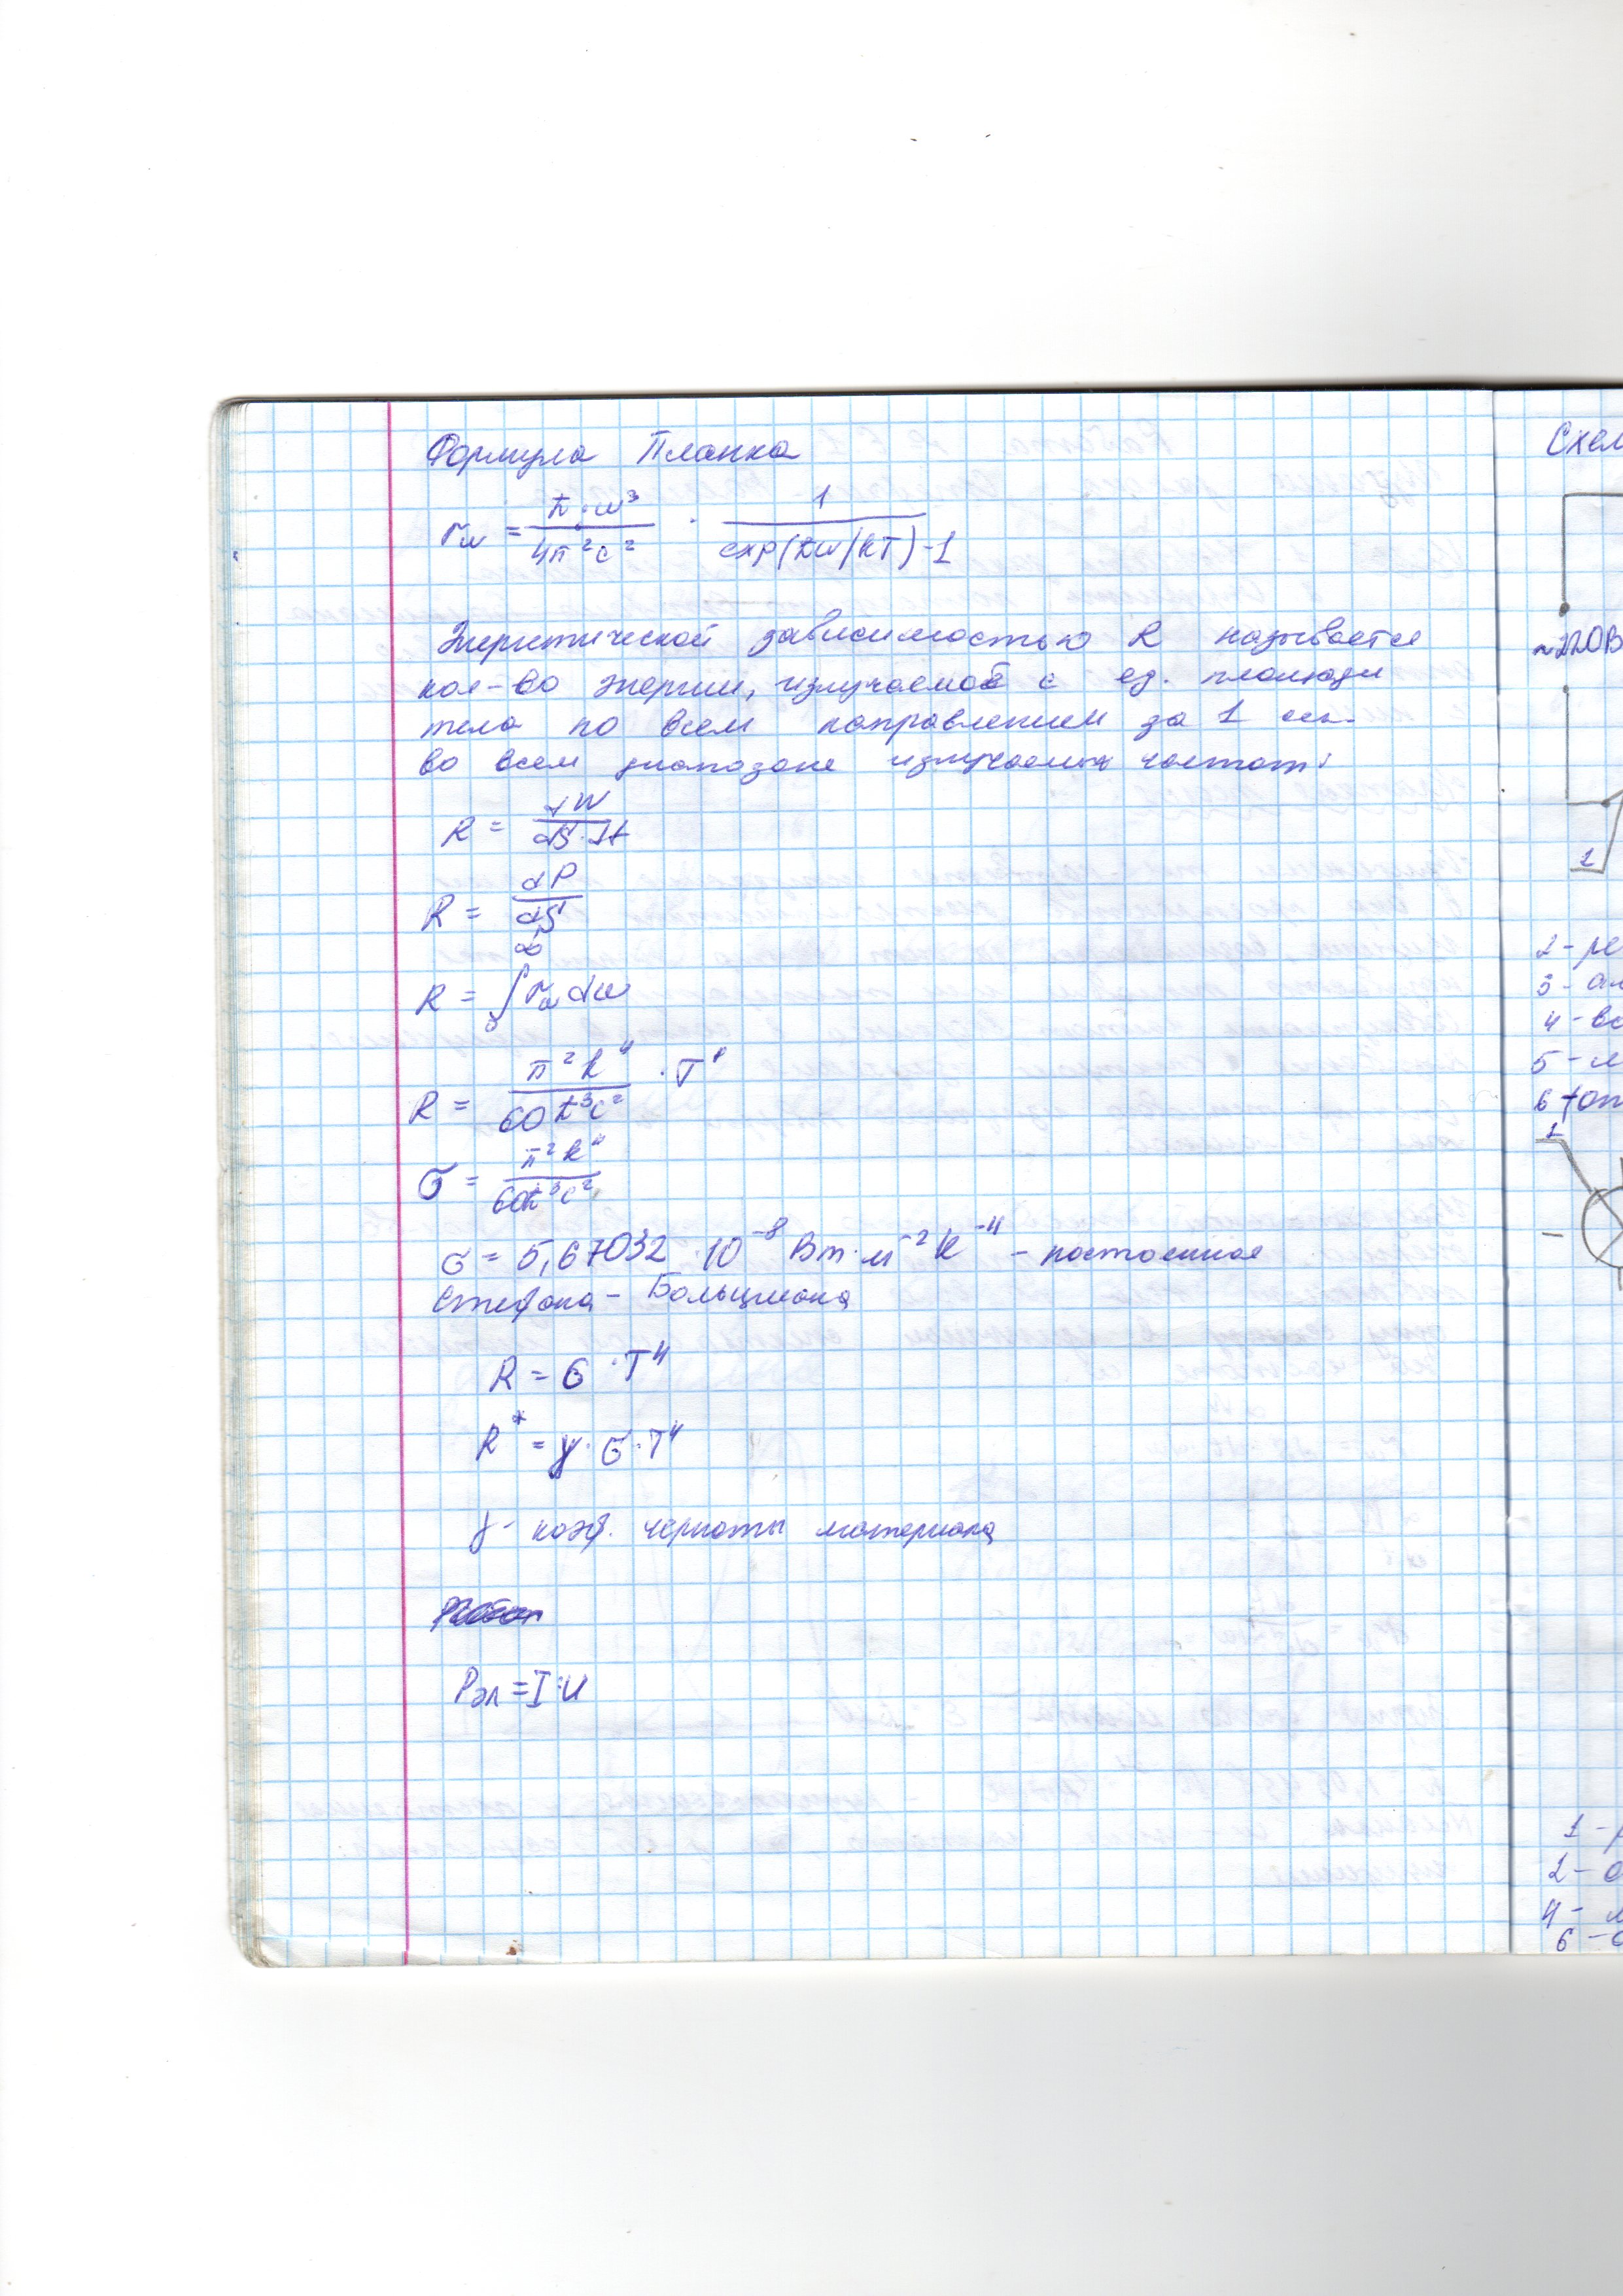 Формула Планка
rω = ħ·ω³/4π²c² · 1/exp(ħω/kT)-1
Энергетической зависимостью R называется
кол-во энергии, излучаемой с ед. площади
тела по всем направлением за 1 сек.
во всем диапозоне излучаемых частот:
R = dW/dS·dt
R = dP/dS
R = ∫₀^∞ rω dω
R = π²k⁴/60ħ³c² · T⁴
σ = π²k⁴/60ħ³c²
σ = 5,67032 · 10⁻⁸ Вт·м⁻² К⁻⁴ - постоянная
Стефана - Больцмана
R = σ · T⁴
R* = γ · σ · T⁴
γ - коэф. черноты материала
Pэл = I·U
~220В
1
2 -
3 -
4 -
5 -
6 -
1
1 -
2 -
4 -
6 -